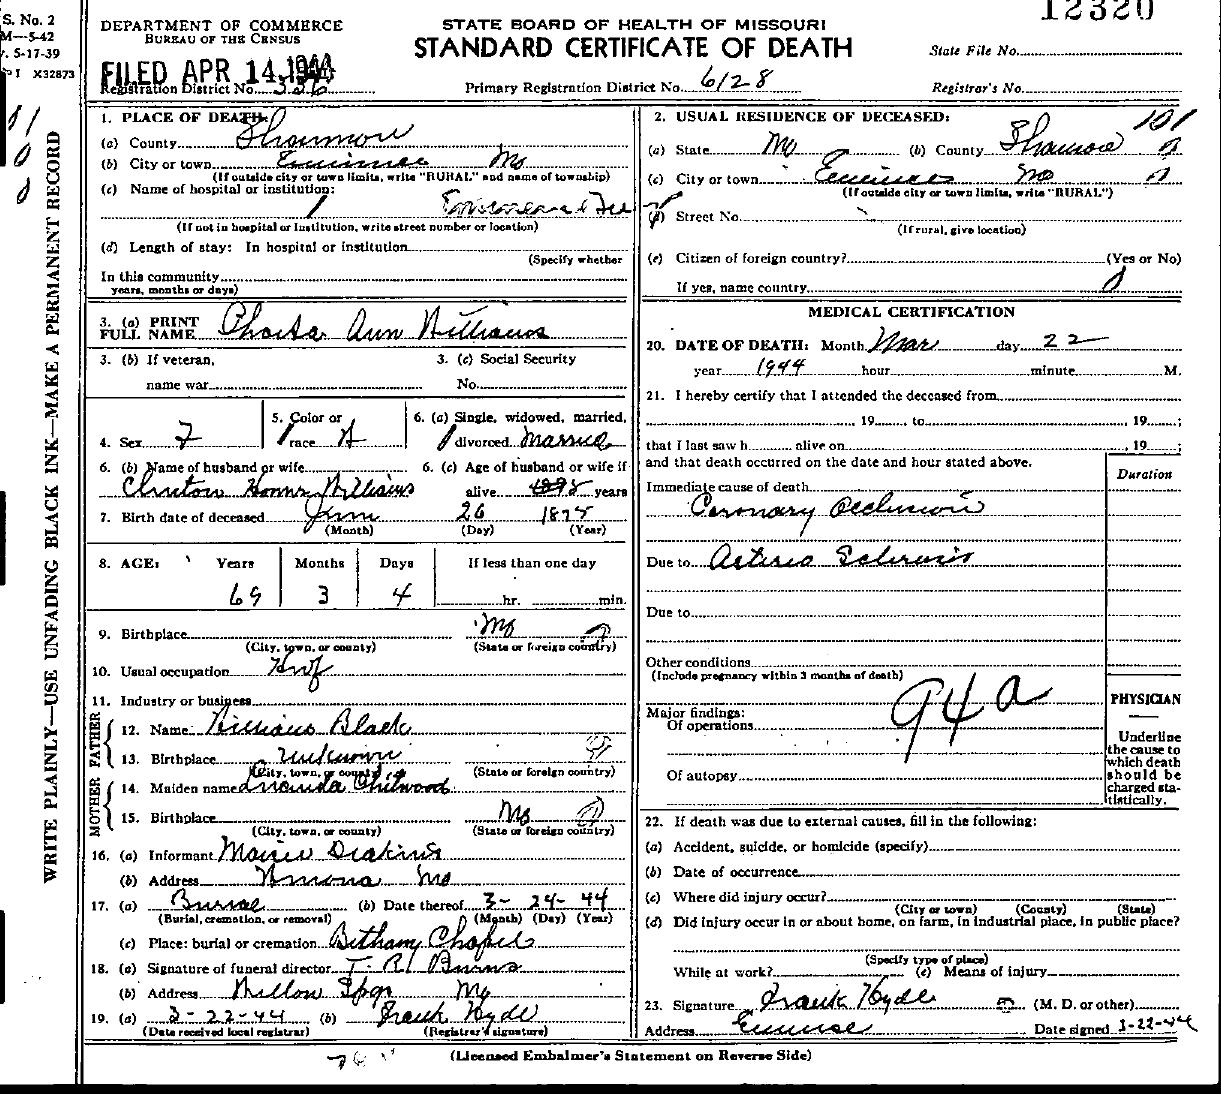 12320
S. No. 2
M—5-42
v. 5-17-39
I X32873
DEPARTMENT OF COMMERCE
BUREAU OF THE CENSUS
STATE BOARD OF HEALTH OF MISSOURI
STANDARD CERTIFICATE OF DEATH
State File No.
FILED APR 14 1944
Registration District No. 336
Primary Registration District No. 6128
Registrar's No.
WRITE PLAINLY—USE UNFADING BLACK INK—MAKE A PERMANENT RECORD
1. PLACE OF DEATH:
(a) County Shannon
(b) City or town Eminence Mo
(If outside city or town limits, write "RURAL" and name of township)
(c) Name of hospital or institution:
(If not in hospital or institution, write street number or location)
(d) Length of stay: In hospital or institution
(Specify whether
In this community
years, months or days)
2. USUAL RESIDENCE OF DECEASED: 101
(a) State Mo (b) County Shannon
(c) City or town Eminence Mo
(If outside city or town limits, write "RURAL")
(d) Street No.
(If rural, give location)
(e) Citizen of foreign country? (Yes or No)
If yes, name country 0
3. (a) PRINT FULL NAME Ann Williams
3. (b) If veteran,
name war
3. (c) Social Security
No.
4. Sex F
5. Color or race W
6. (a) Single, widowed, married, divorced Married
6. (b) Name of husband or wife
Clinton Homer Williams
6. (c) Age of husband or wife if alive years
7. Birth date of deceased 26 1875
(Month) (Day) (Year)
8. AGE: Years Months Days If less than one day
69 3 4 hr. min.
9. Birthplace Mo
(City, town, or county) (State or foreign country)
10. Usual occupation Hwf
11. Industry or business
FATHER
12. Name William Black
13. Birthplace Unknown
(City, town, or county) (State or foreign country)
MOTHER
14. Maiden name Chitwood
15. Birthplace Mo
(City, town, or county) (State or foreign country)
16. (a) Informant Deakins
(b) Address Winona Mo
17. (a) Burial (b) Date thereof 3-24-44
(Burial, cremation, or removal) (Month) (Day) (Year)
(c) Place: burial or cremation Bethany Chapel
18. (a) Signature of funeral director T. R. Burns
(b) Address Willow Spgs Mo
19. (a) 3-22-44 (b) Frank Hyde
(Date received local registrar) (Registrar's signature)
MEDICAL CERTIFICATION
20. DATE OF DEATH: Month Mar day 22
year 1944 hour minute M.
21. I hereby certify that I attended the deceased from
19 , to 19 ;
that I last saw h alive on 19 ;
and that death occurred on the date and hour stated above.
Duration
Immediate cause of death
Coronary Occlusion
Due to Arterio Sclerosis
Due to
Other conditions
(Include pregnancy within 3 months of death)
94a
Major findings:
Of operations
Of autopsy
PHYSICIAN
Underline
the cause to
which death
should be
charged sta-
tistically.
22. If death was due to external causes, fill in the following:
(a) Accident, suicide, or homicide (specify)
(b) Date of occurrence
(c) Where did injury occur?
(City or town) (County) (State)
(d) Did injury occur in or about home, on farm, in industrial place, in public place?
(Specify type of place)
While at work? (e) Means of injury
23. Signature Frank Hyde (M. D. or other)
Address Eminence Date signed 3-22-44
(Licensed Embalmer's Statement on Reverse Side)